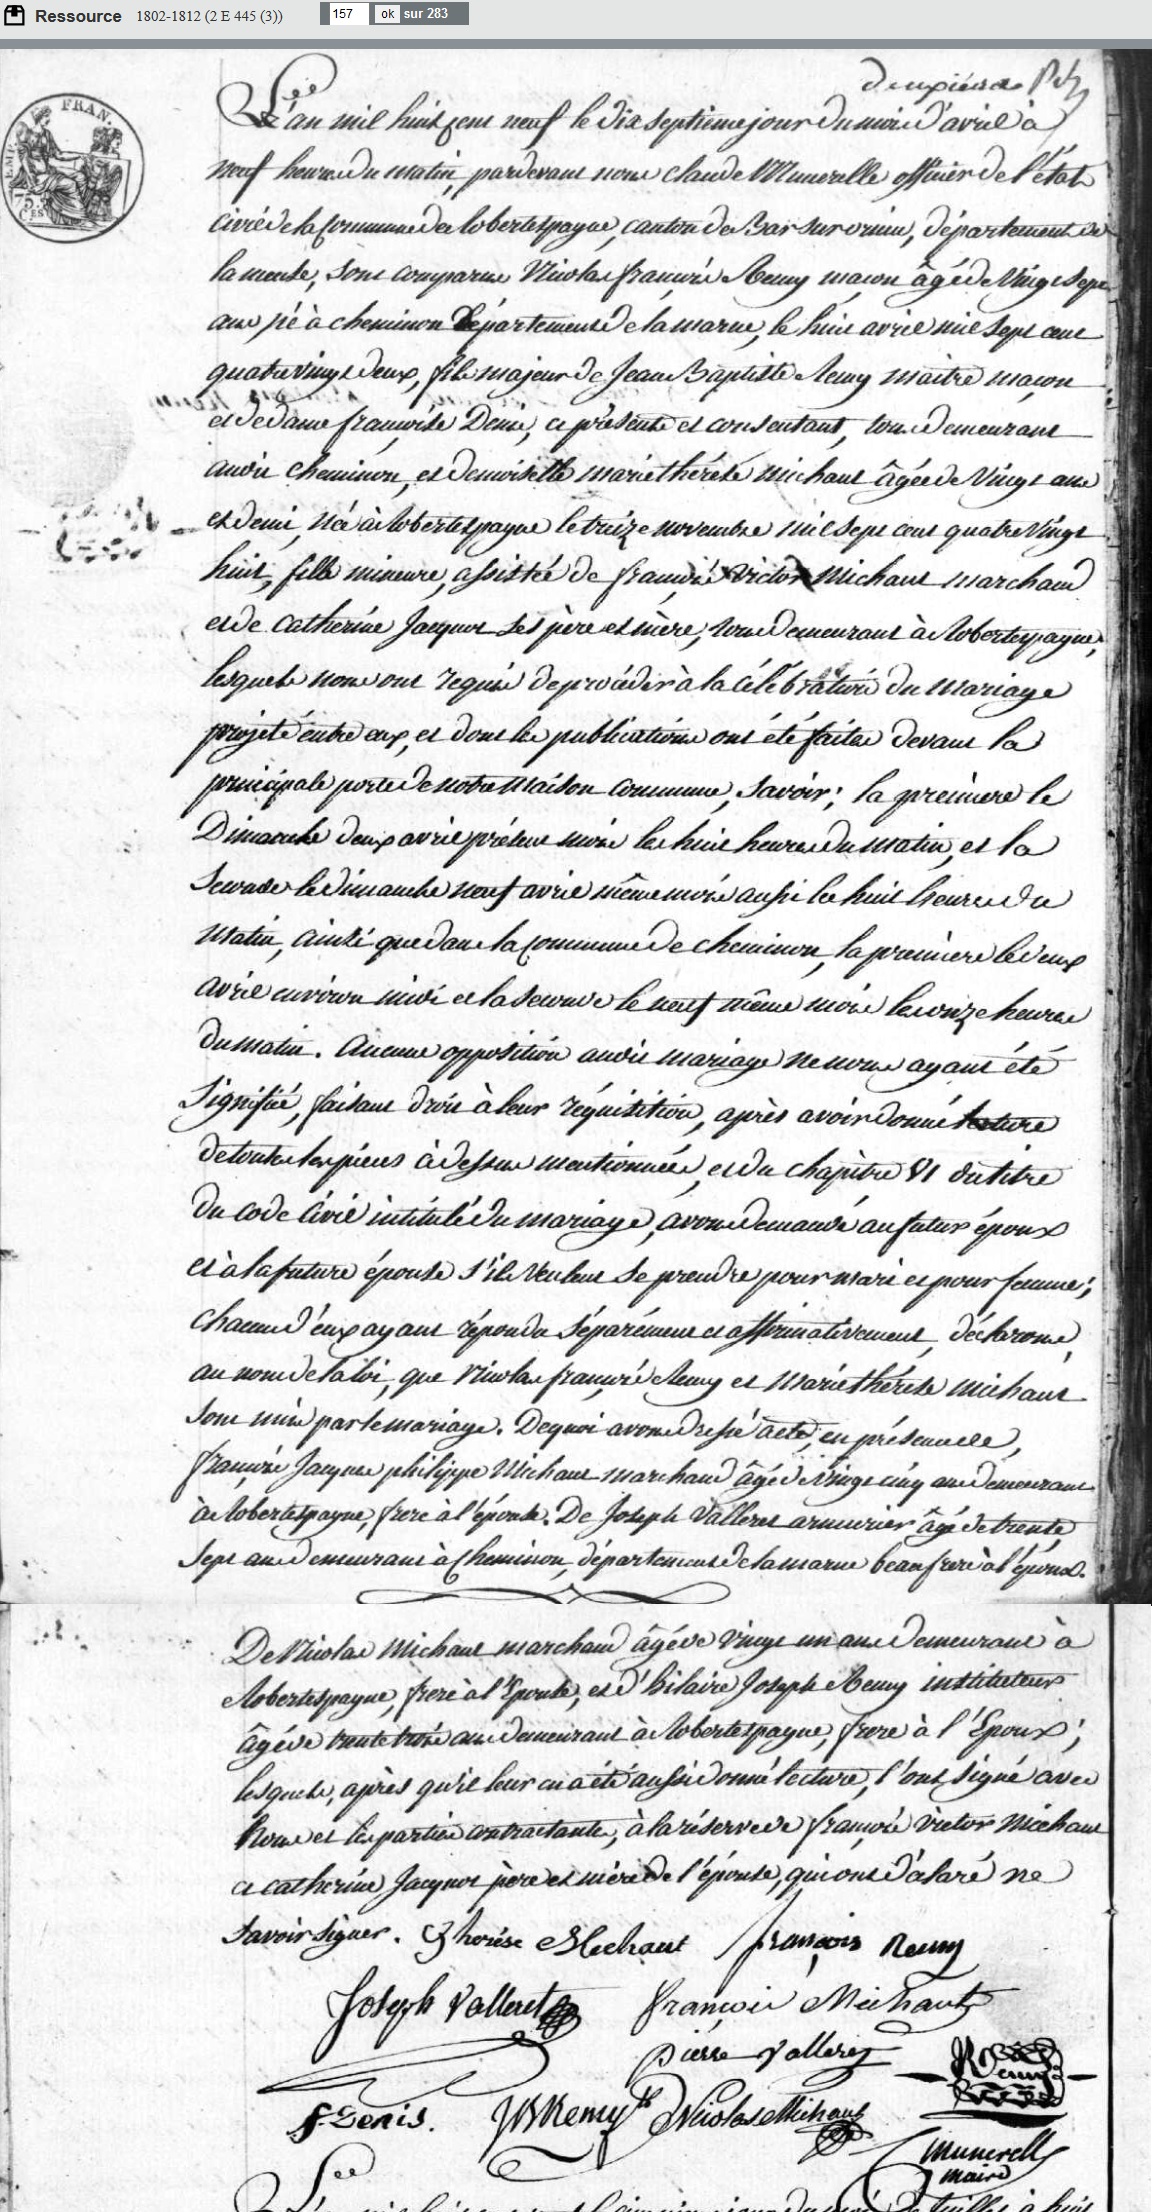 Ressource 1802-1812 (2 E 445 (3)) 157 ok sur 283
deuxième
FRAN.
75.
CES
L'an mil huit cent neuf le dix septieme jour du mois d'avril à
neuf heures du matin, pardevant nous claude Munerelle officier de l'état
civil de la commune de Robertespagne, canton de Bar sur ornain, département de
la meuse, sont comparus Nicolas françois Remy maçon âgé de vingt sept
ans né à cheminon département de la marne, le huit avril mil sept cent
quatre vingt deux, fils majeur de Jean Baptiste Remy maître maçon
et de dame françoise Denis, ci présents et consentant, tous demeurant
audit cheminon, et demoiselle marie thérése michaut âgée de vingt ans
et demi, née à Robertespagne le treize novembre mil sept cent quatre vingt
huit, fille mineure, assistée de françois victor Michaut marchand
et de catherine Jacquot ses père et mère, tous demeurant à Robertespagne;
lesquels nous ont requis de procéder à la célébration du mariage
projeté entre eux, et dont les publications ont été faites devant la
principale porte de notre maison commune, savoir; la première le
Dimanche deux avril présent mois les huit heures du matin, et la
seconde le dimanche neuf avril même mois aussi les huit heures du
matin, ainsi que dans la commune de cheminon, la première le deux
avril environ midi et la seconde le neuf même mois les onze heures
du matin. Aucune opposition audit mariage ne nous ayant été
signifié, faisant droit à leur réquisition, après avoir donné lecture
de toutes les pièces ci dessus mentionnées, et du chapitre VI du titre
du code civil intitulé du mariage, avons demandé au futur époux
et à la future épouse s'ils veulent se prendre pour mari et pour femme;
chacun d'eux ayant répondu séparément et affirmativement, déclarons,
au nom de la loi, que Nicolas françois Remy et marie thérése michaut
sont unis par le mariage. De quoi avons dressé acte, en présence de,
françois Jacques philippe Michaut marchand âgé de vingt cinq ans demeurant
à Robertespagne, frere à l'épouse. De Joseph Valleret armurier âgé de trente
sept ans demeurant à Cheminon, département de la marne beau frere à l'époux.
De Nicolas Michaut marchand âgé de vingt un ans demeurant à
Robertespagne, frere à l'Epouse, et d'hilaire Joseph Remy instituteur
âgé de trente trois ans demeurant à Robertespagne, frere à l'Epoux;
lesquels, après qu'il leur en a été aussi donné lecture, l'ont signé avec
Nous et les parties contractantes, à la réserve de françois victor Michaut
et catherine Jacquot père et mère de l'épouse, qui ont déclaré ne
savoir signer. Thérése Michaut françois Remy
Joseph Valleret françois Michaut
pierre Valleret
Remy
f Denis. JB Remy Nicolas Michaut
Munerelle
maire